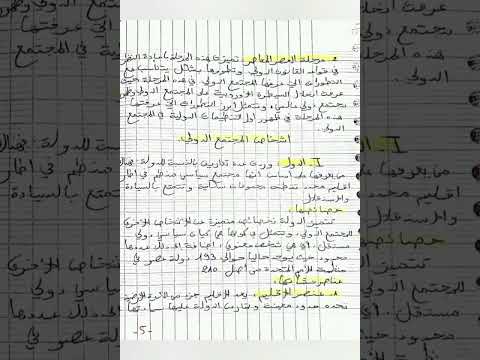 * مرحلة العصر المعاصر: تميزت هذه المرحلة بإعادة النظر
في قواعد القانون الدولي وتطويرها بشكل يتناسب مع
التطورات التي عرفتها المجتمع الدولي في هذه المرحلة حيث
عرفت انحلال السيطرة الأوروبية على المجتمع الدولي وظهور
مجتمع دولي عالمي، وتتمثل أبرز التطورات التي عرفتها
هذه المرحلة في ظهور أول التنظيمات الدولية في المجتمع
الدولي.
أشخاص المجتمع الدولي.
I - الدول: وردت عدة تعاريف بالنسبة للدولة، فهناك
من يعرفها على أساس أنها مجتمع سياسي منظم في إطار
إقليم محدد تقطنه مجموعات سكانية وتتمتع بالسيادة
والاستقلال
خصائصها:
تتميز الدولة بخصائص متميزة عن الأشخاص الأخرى
للمجتمع الدولي، وتتمثل في كونها هي كيان سياسي دولي
مستقل، أي هي شخص معنوي، إضافة إلى ذلك عددها
محدود، حيث يوجد حاليا حوالي 193 دولة عضو في
منظمة الأمم المتحدة من أصل 210
عناصر نشأتها:
* عنصر الإقليم: يعد الإقليم جزء من الكرة الأرضية
تحده حدود معينة وتمارس الدولة عليها سيادتها
-5-